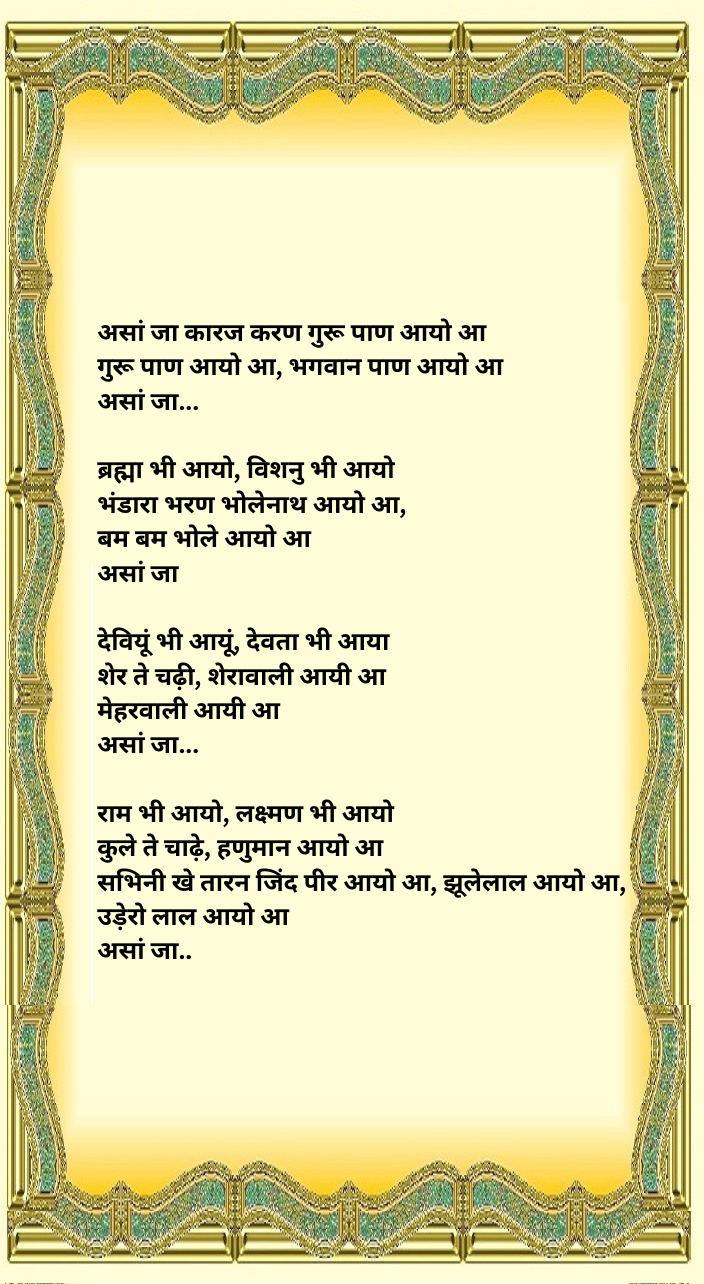 असां जा कारज करण गुरू पाण आयो आ
गुरू पाण आयो आ, भगवान पाण आयो आ
असां जा...
ब्रह्मा भी आयो, विशनु भी आयो
भंडारा भरण भोलेनाथ आयो आ,
बम बम भोले आयो आ
असां जा
देवियूं भी आयूं, देवता भी आया
शेर ते चढ़ी, शेरावाली आयी आ
मेहरवाली आयी आ
असां जा...
राम भी आयो, लक्ष्मण भी आयो
कुले ते चाढ़े, हणुमान आयो आ
सभिनी खे तारन जिंद पीर आयो आ, झूलेलाल आयो आ,
उड़ेरो लाल आयो आ
असां जा..